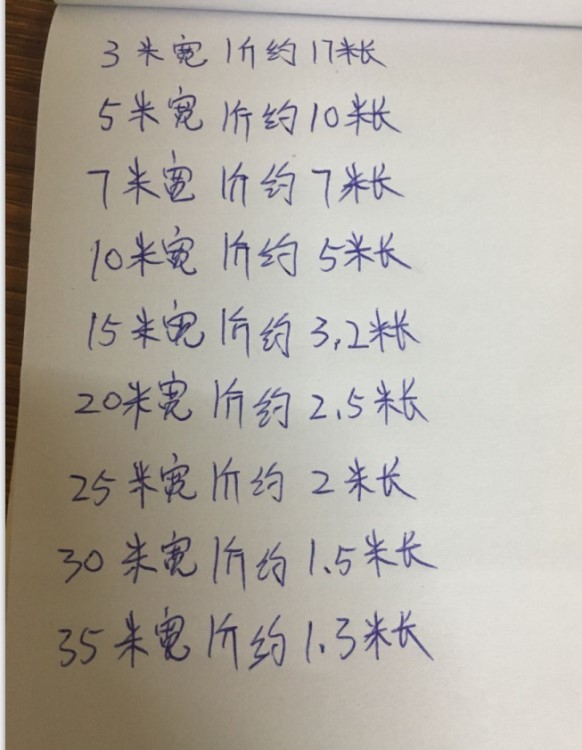 3米宽1斤约17米长
5米宽1斤约10米长
7米宽1斤约7米长
10米宽1斤约5米长
15米宽1斤约3.2米长
20米宽1斤约2.5米长
25米宽1斤约2米长
30米宽1斤约1.5米长
35米宽1斤约1.3米长